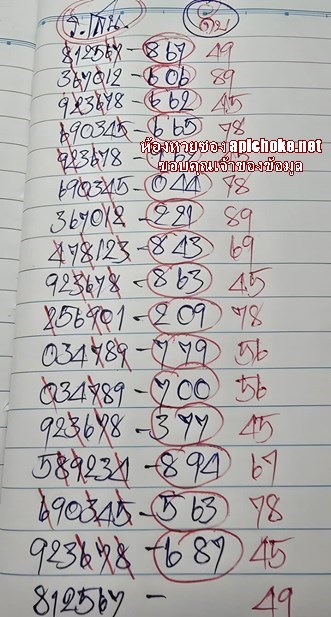 ร.ทน. ดับ
812567 - 867 49
367012 - 606 89
923678 - 662 45
690345 - 665 78
ห้องหวยซอง apichoke.net
923678 45
ขอบคุณเจ้าของข้อมูล
690345 - 044 78
367012 - 221 89
478123 - 843 69
923678 - 863 45
256901 - 209 78
034789 - 779 56
034789 - 700 56
923678 - 377 45
589234 - 894 67
690345 - 563 78
923678 - 687 45
812567 - 49